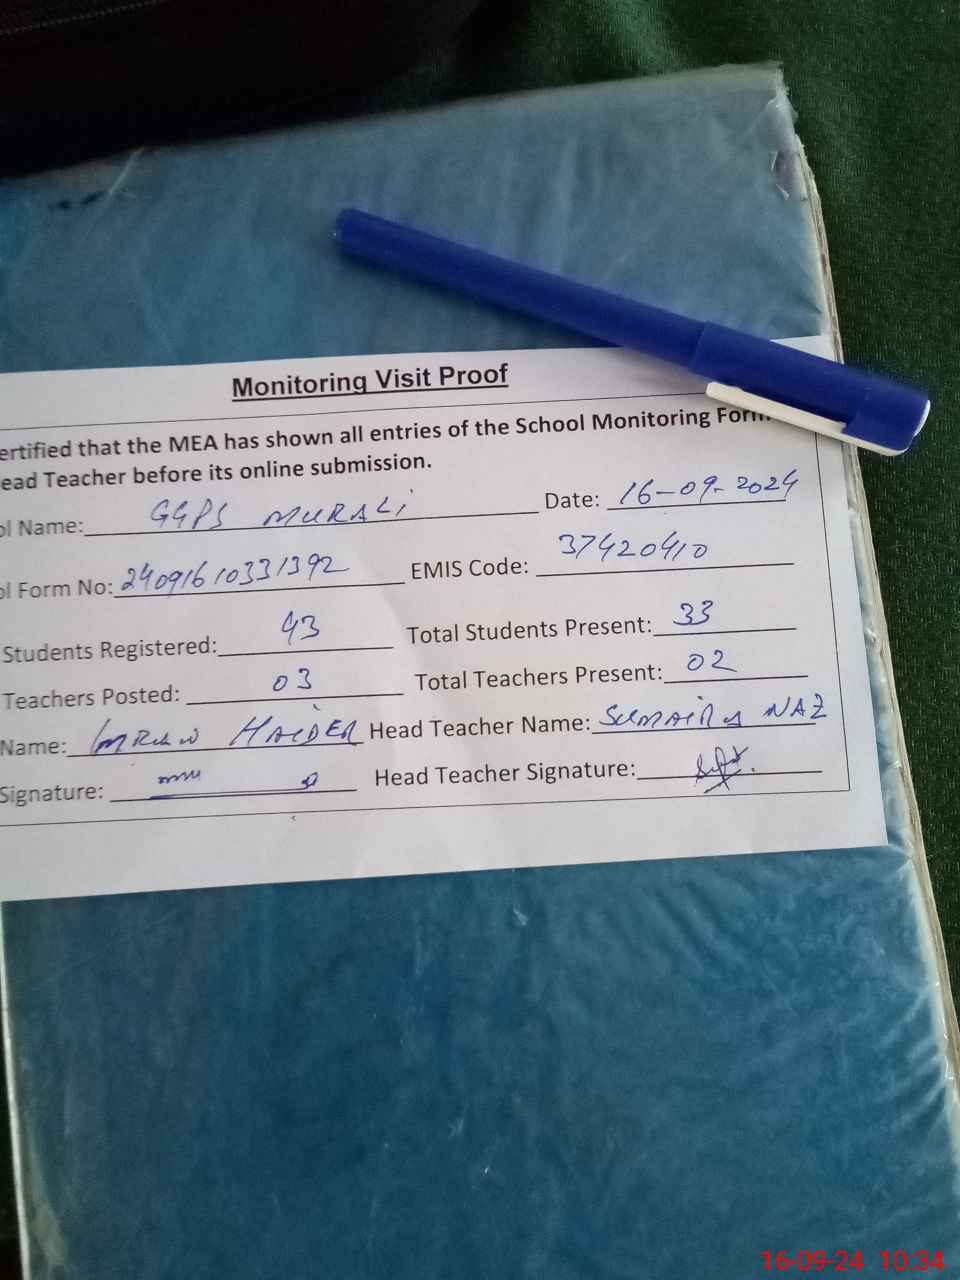 Monitoring Visit Proof
ertified that the MEA has shown all entries of the School Monitoring Form
ead Teacher before its online submission.
ol Name: GGPS MURALI Date: 16-09-2024
ol Form No: 24091610331392 EMIS Code: 37420410
Students Registered: 43 Total Students Present: 33
Teachers Posted: 03 Total Teachers Present: 02
Name: IMRAN HAIDER Head Teacher Name: SUMAIRA NAZ
Signature: Head Teacher Signature:
16-09-24 10:34